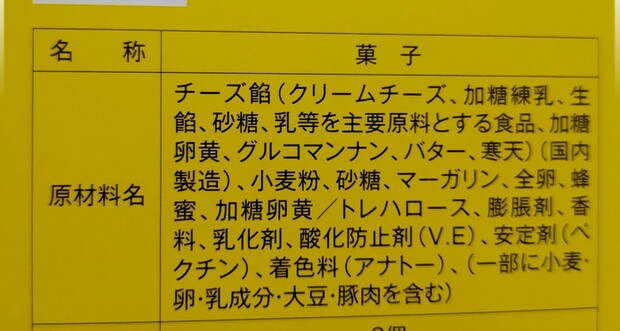 名 称 菓 子
原材料名
チーズ餡(クリームチーズ、加糖練乳、生
餡、砂糖、乳等を主要原料とする食品、加糖
卵黄、グルコマンナン、バター、寒天)(国内
製造)、小麦粉、砂糖、マーガリン、全卵、蜂
蜜、加糖卵黄／トレハロース、膨脹剤、香
料、乳化剤、酸化防止剤(V.E)、安定剤(ペ
クチン)、着色料(アナトー)、(一部に小麦・
卵・乳成分・大豆・豚肉を含む)